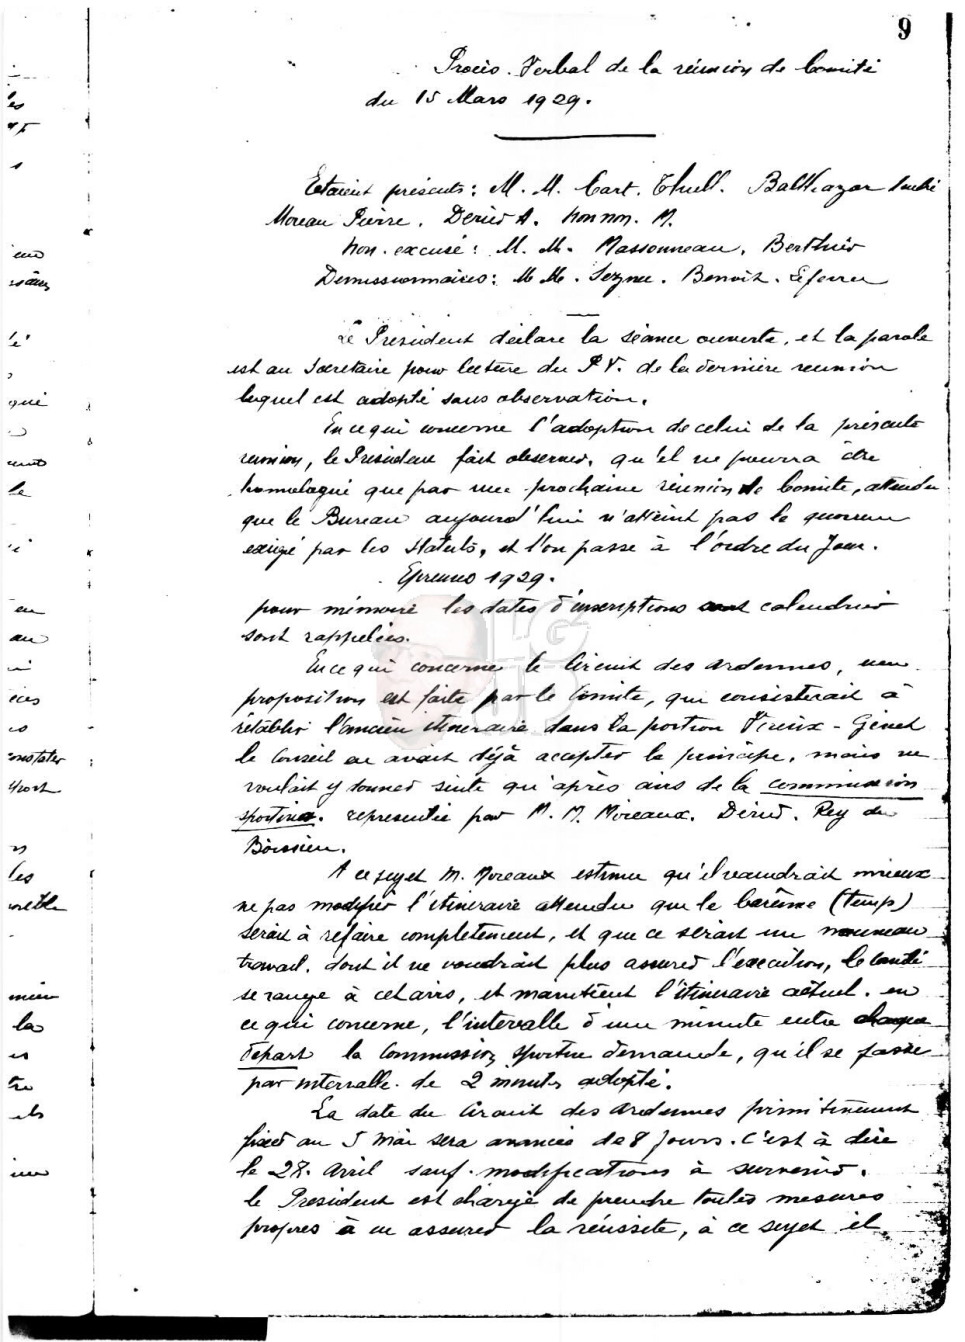 9
Procès. Verbal de la réunion de Comité
du 15 Mars 1929.
Etaient présents: M. M. Cart. Thull. Balthazar André
Moreau Pierre. Deried A. Nonnon. M.
Non. excusé: M. M. Massonneau. Berthier
Demissionnaires: M M. Seznec. Benoit. Leferrer
Le President déclare la séance ouverte, et la parole
est au Secretaire pour lecture du P.V. de la dernière reunion
lequel est adopté sans observation.
En ce qui concerne l'adoption de celui de la présente
reunion, le President fait observer, qu'il ne pourra être
homologué que par une prochaine réunion de Comité, attendu
que le Bureau aujourd'hui n'atteint pas le quorum
exigé par les Statuts, et l'on passe à l'ordre du Jour.
Epreuves 1929.
pour mémoire les dates d'inscriptions calendrier
sont rappelées.
En ce qui concerne le Circuit des Ardennes, une
proposition est faite par le Comité, qui consisterait à
rétablir l'ancien itineraire dans la portion Vieux - Genet
le Conseil en avait déjà accepter le principe, mais ne
voulait y donner suite qu'après avis de la commission
sportive. representée par M. M. Moreaux. Deried. Rey du
Boissieu.
A ce sujet M. Moreaux estime qu'il vaudrait mieux
ne pas modifier l'itineraire attendu que le barême (temps)
serait à refaire completement, et que ce serait un nouveau
travail. dont il ne voudrait plus assurer l'execution, le comité
se range à cet avis, et maintient l'itineraire actuel. en
ce qui concerne, l'intervalle d'une minute entre chaque
départ la Commission sportive demande, qu'il se fasse
par intervalle. de 2 minutes adopté.
La date du Circuit des Ardennes primitivement
fixée au 5 Mai sera avancée de 8 Jours. C'est à dire
le 28. Avril sauf. modifications à survenir.
le President est chargé de prendre toutes mesures
propres à en assurer la réussite, à ce sujet il
LG
UP